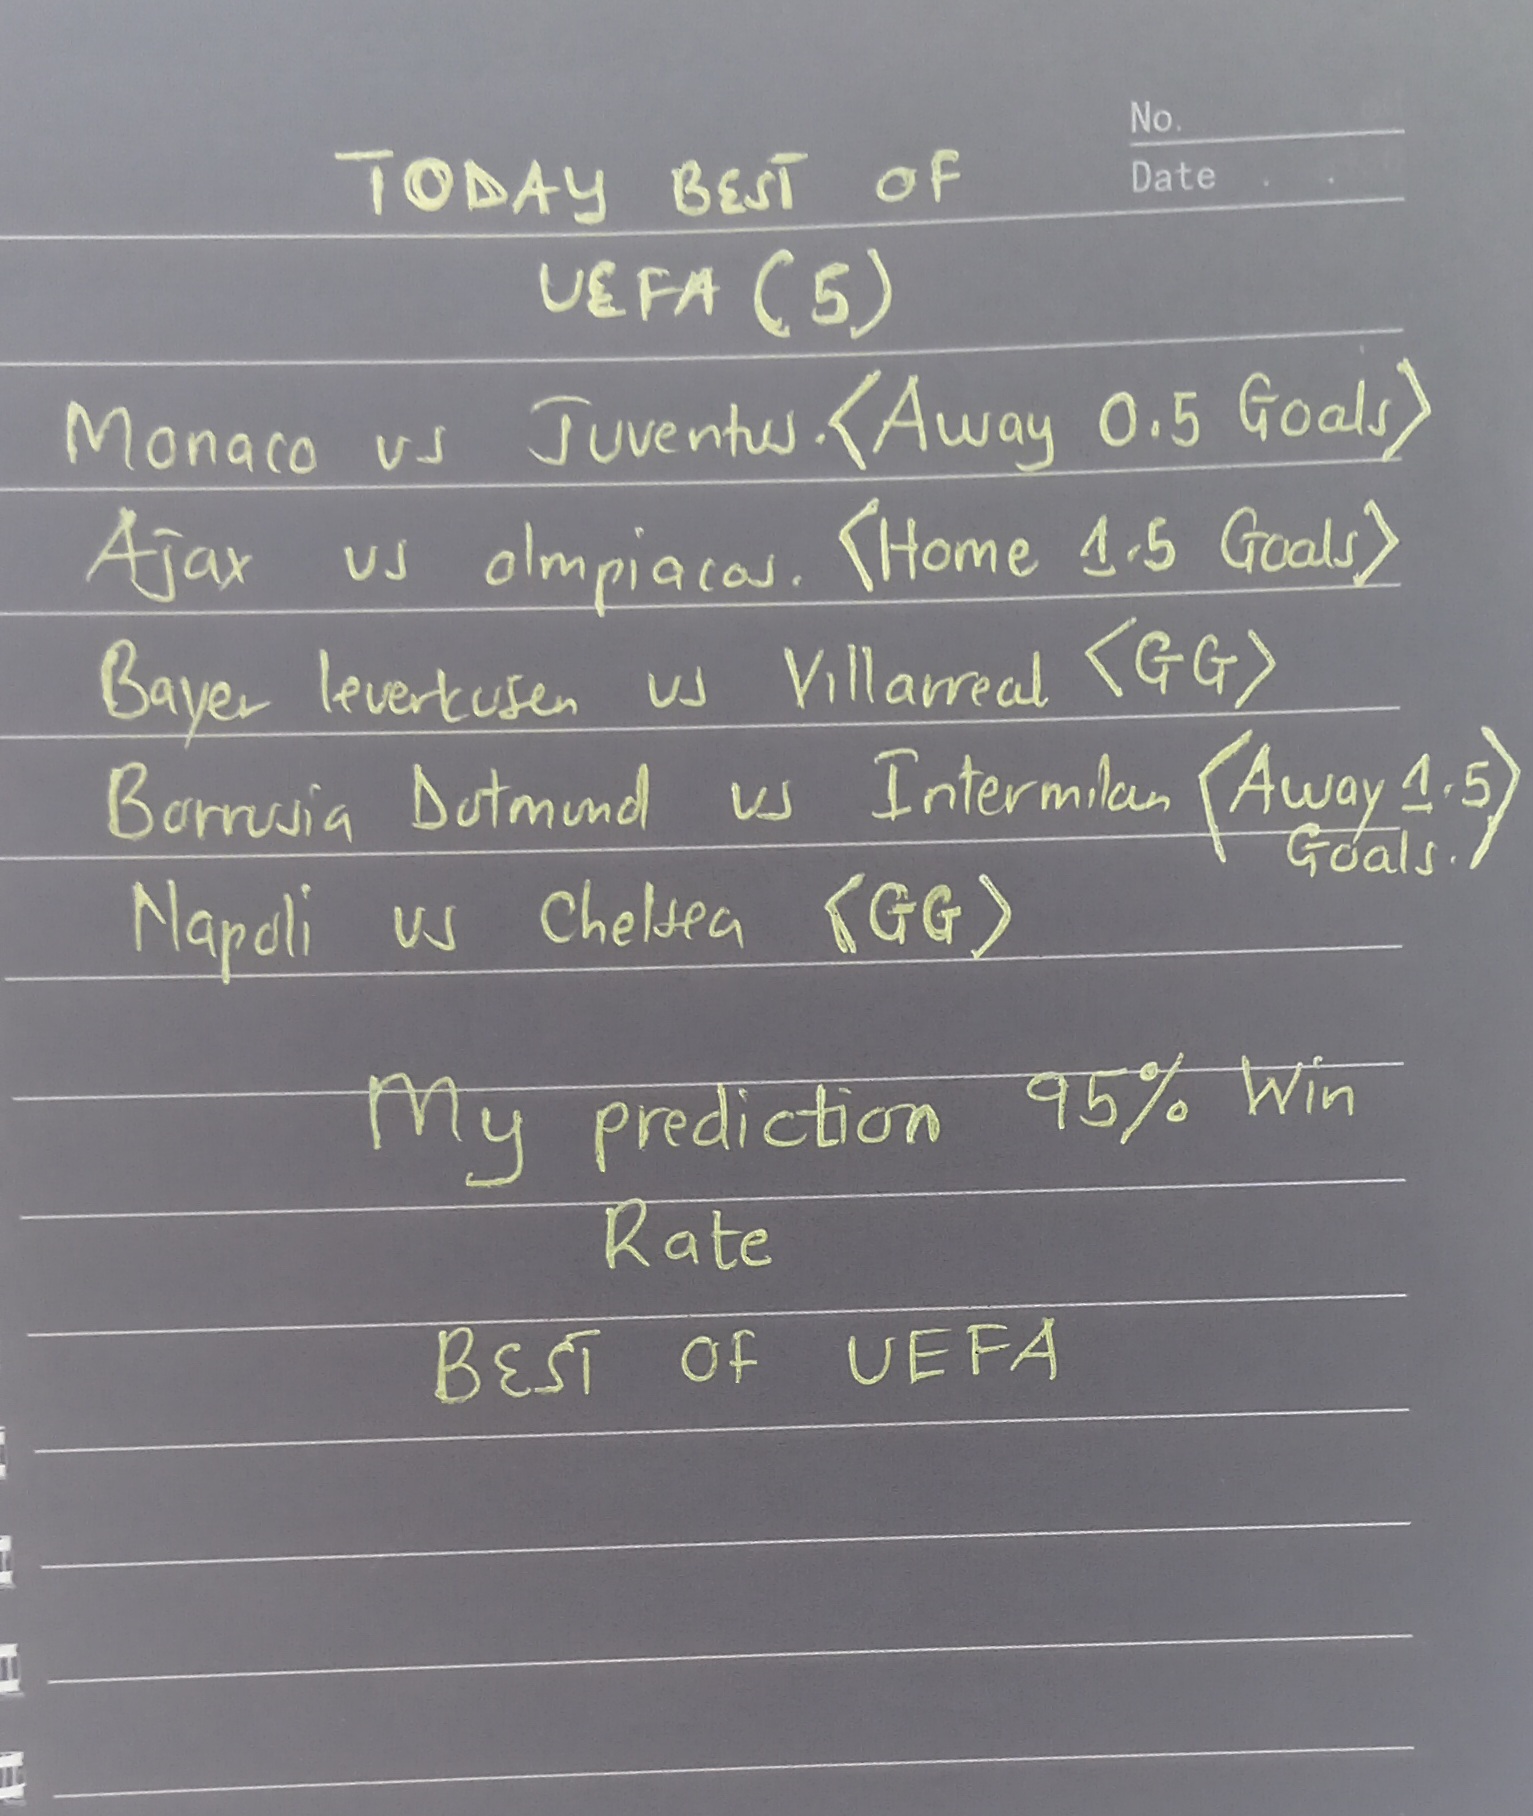 No.
Date . .
TODAY BEST OF
UEFA (5)
Monaco vs Juventus. <Away 0.5 Goals>
Ajax vs olmpiacos. <Home 1.5 Goals>
Bayer leverkusen vs Villarreal <GG>
Borrusia Dotmund vs Intermilan <Away 1.5
Goals.>
Napoli vs Chelsea <GG>
My prediction 95% Win
Rate
BEST OF UEFA